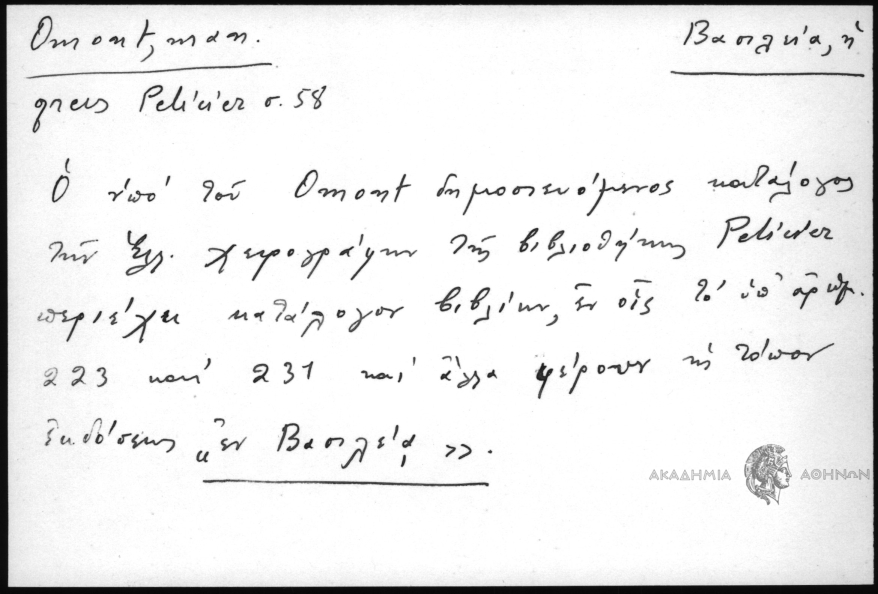 Omont, man. Βασιλεία, ἡ
grecs Pelicier σ. 58
Ὁ ὑπό τοῦ Omont δημοσιευόμενος κατάλογος
τῶν Ἑλλ. χειρογράφων τῆς βιβλιοθήκης Pelicier
περιέχει κατάλογον βιβλίων, ἐν οἷς τό ὑπ' ἀριθμ.
223 καί 231 καί ἄλλα φέρουν ὡς τόπον
ἐκδόσεως «ἐν Βασιλείᾳ».
ΑΚΑΔΗΜΙΑ ΑΘΗΝΩΝ